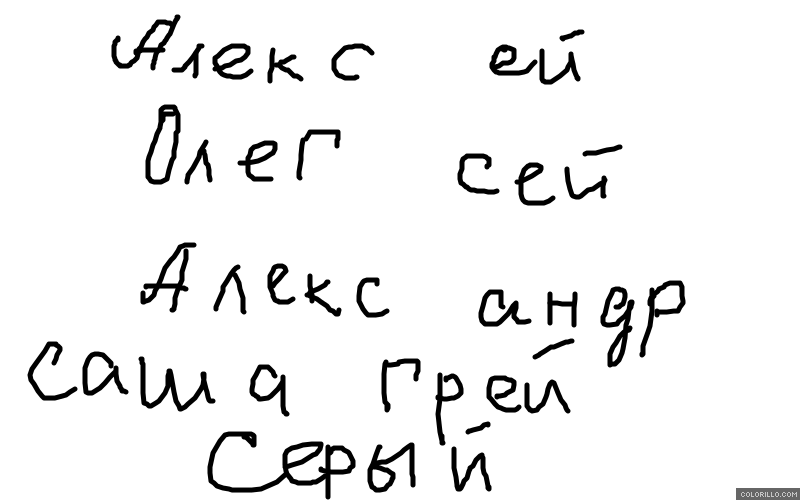 Алекс ей
Олег сей
Алекс андр
саша грей
Серый
COLORILLO.COM